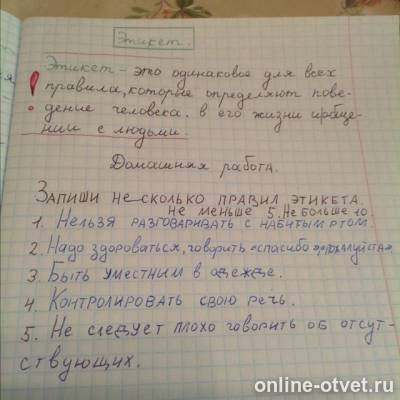 Этикет.
Этикет - это одинаковое для всех
правила, которые определяют пове-
дение человека. в его жизни и обще-
нии с людьми.
Домашняя работа.
Запиши несколько правил этикета.
не меньше 5. не больше 10
1. Нельзя разговаривать с набитым ртом.
2. Надо здороваться, говорить «спасибо», «пожалуйста».
3. Быть уместним в одежде.
4. Контролировать свою речь.
5. Не следует плохо говорить об отсут-
ствующих.
online-otvet.ru